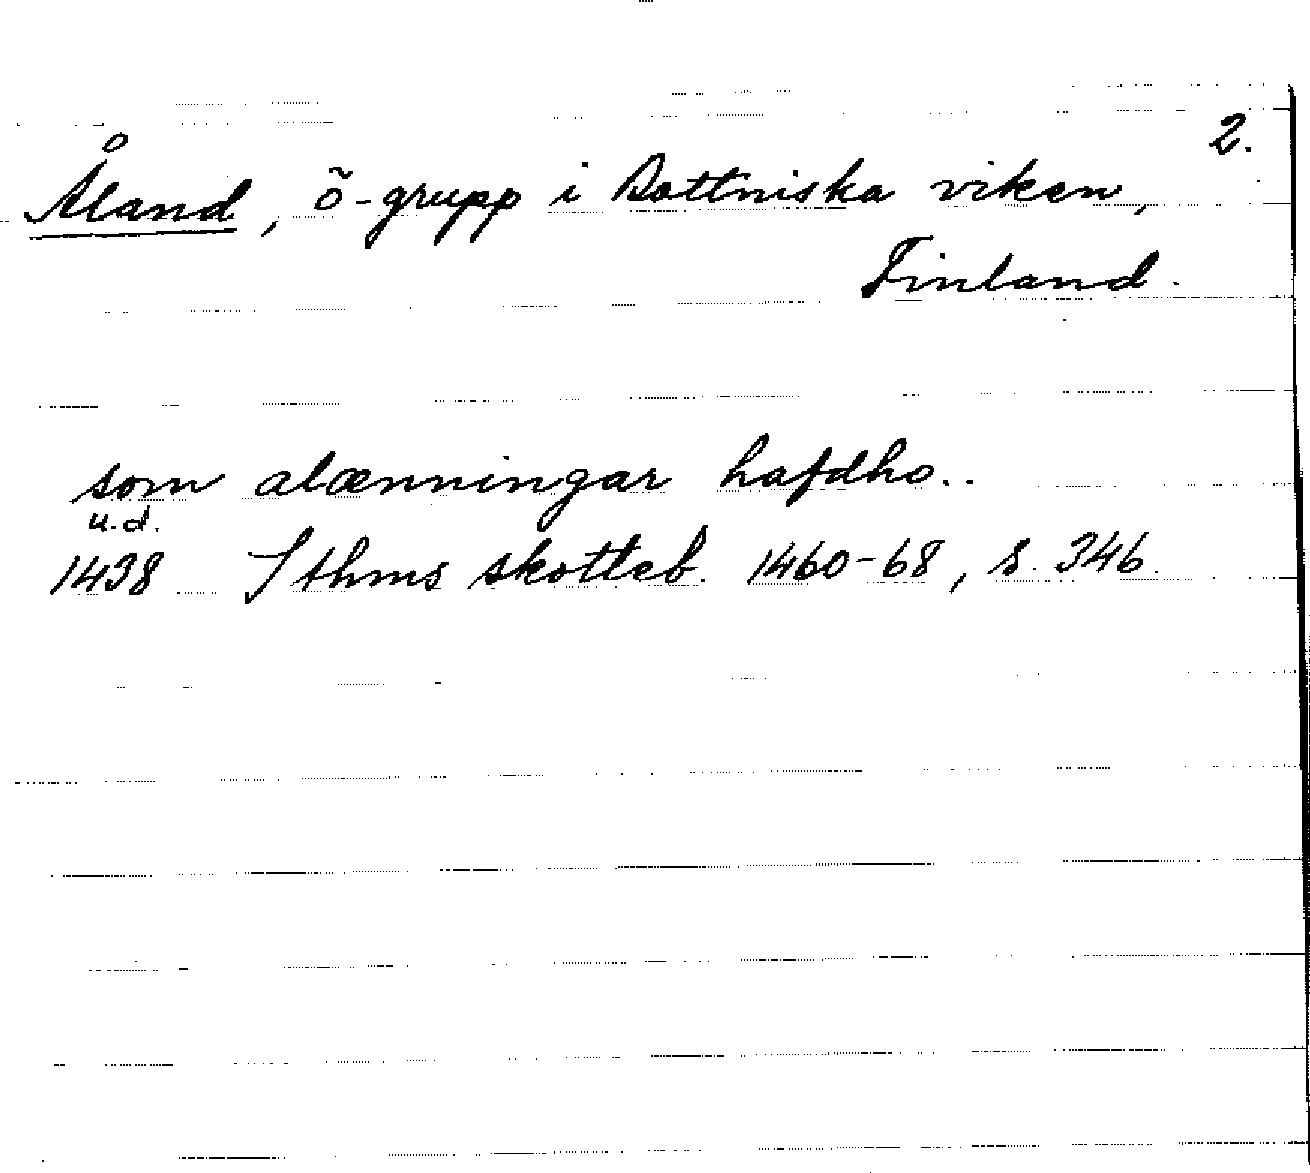 2.
Åland, ö-grupp i Bottniska viken,
Finland.
som alænningar hafdho..
u.d.
1438 Sthms skotteb. 1460-68, s. 346.